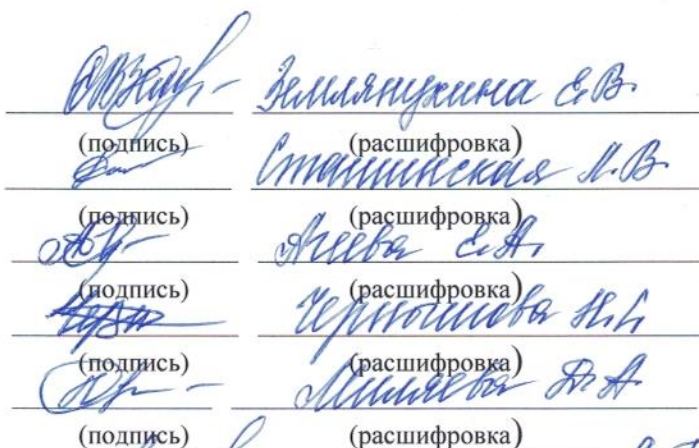 Землянухина Е.В.
(подпись) (расшифровка)
Сташинская Л.В.
(подпись) (расшифровка)
Агеева Е.А.
(подпись) (расшифровка)
Чернышова Н.
(подпись) (расшифровка)
Миляева
(подпись) (расшифровка)